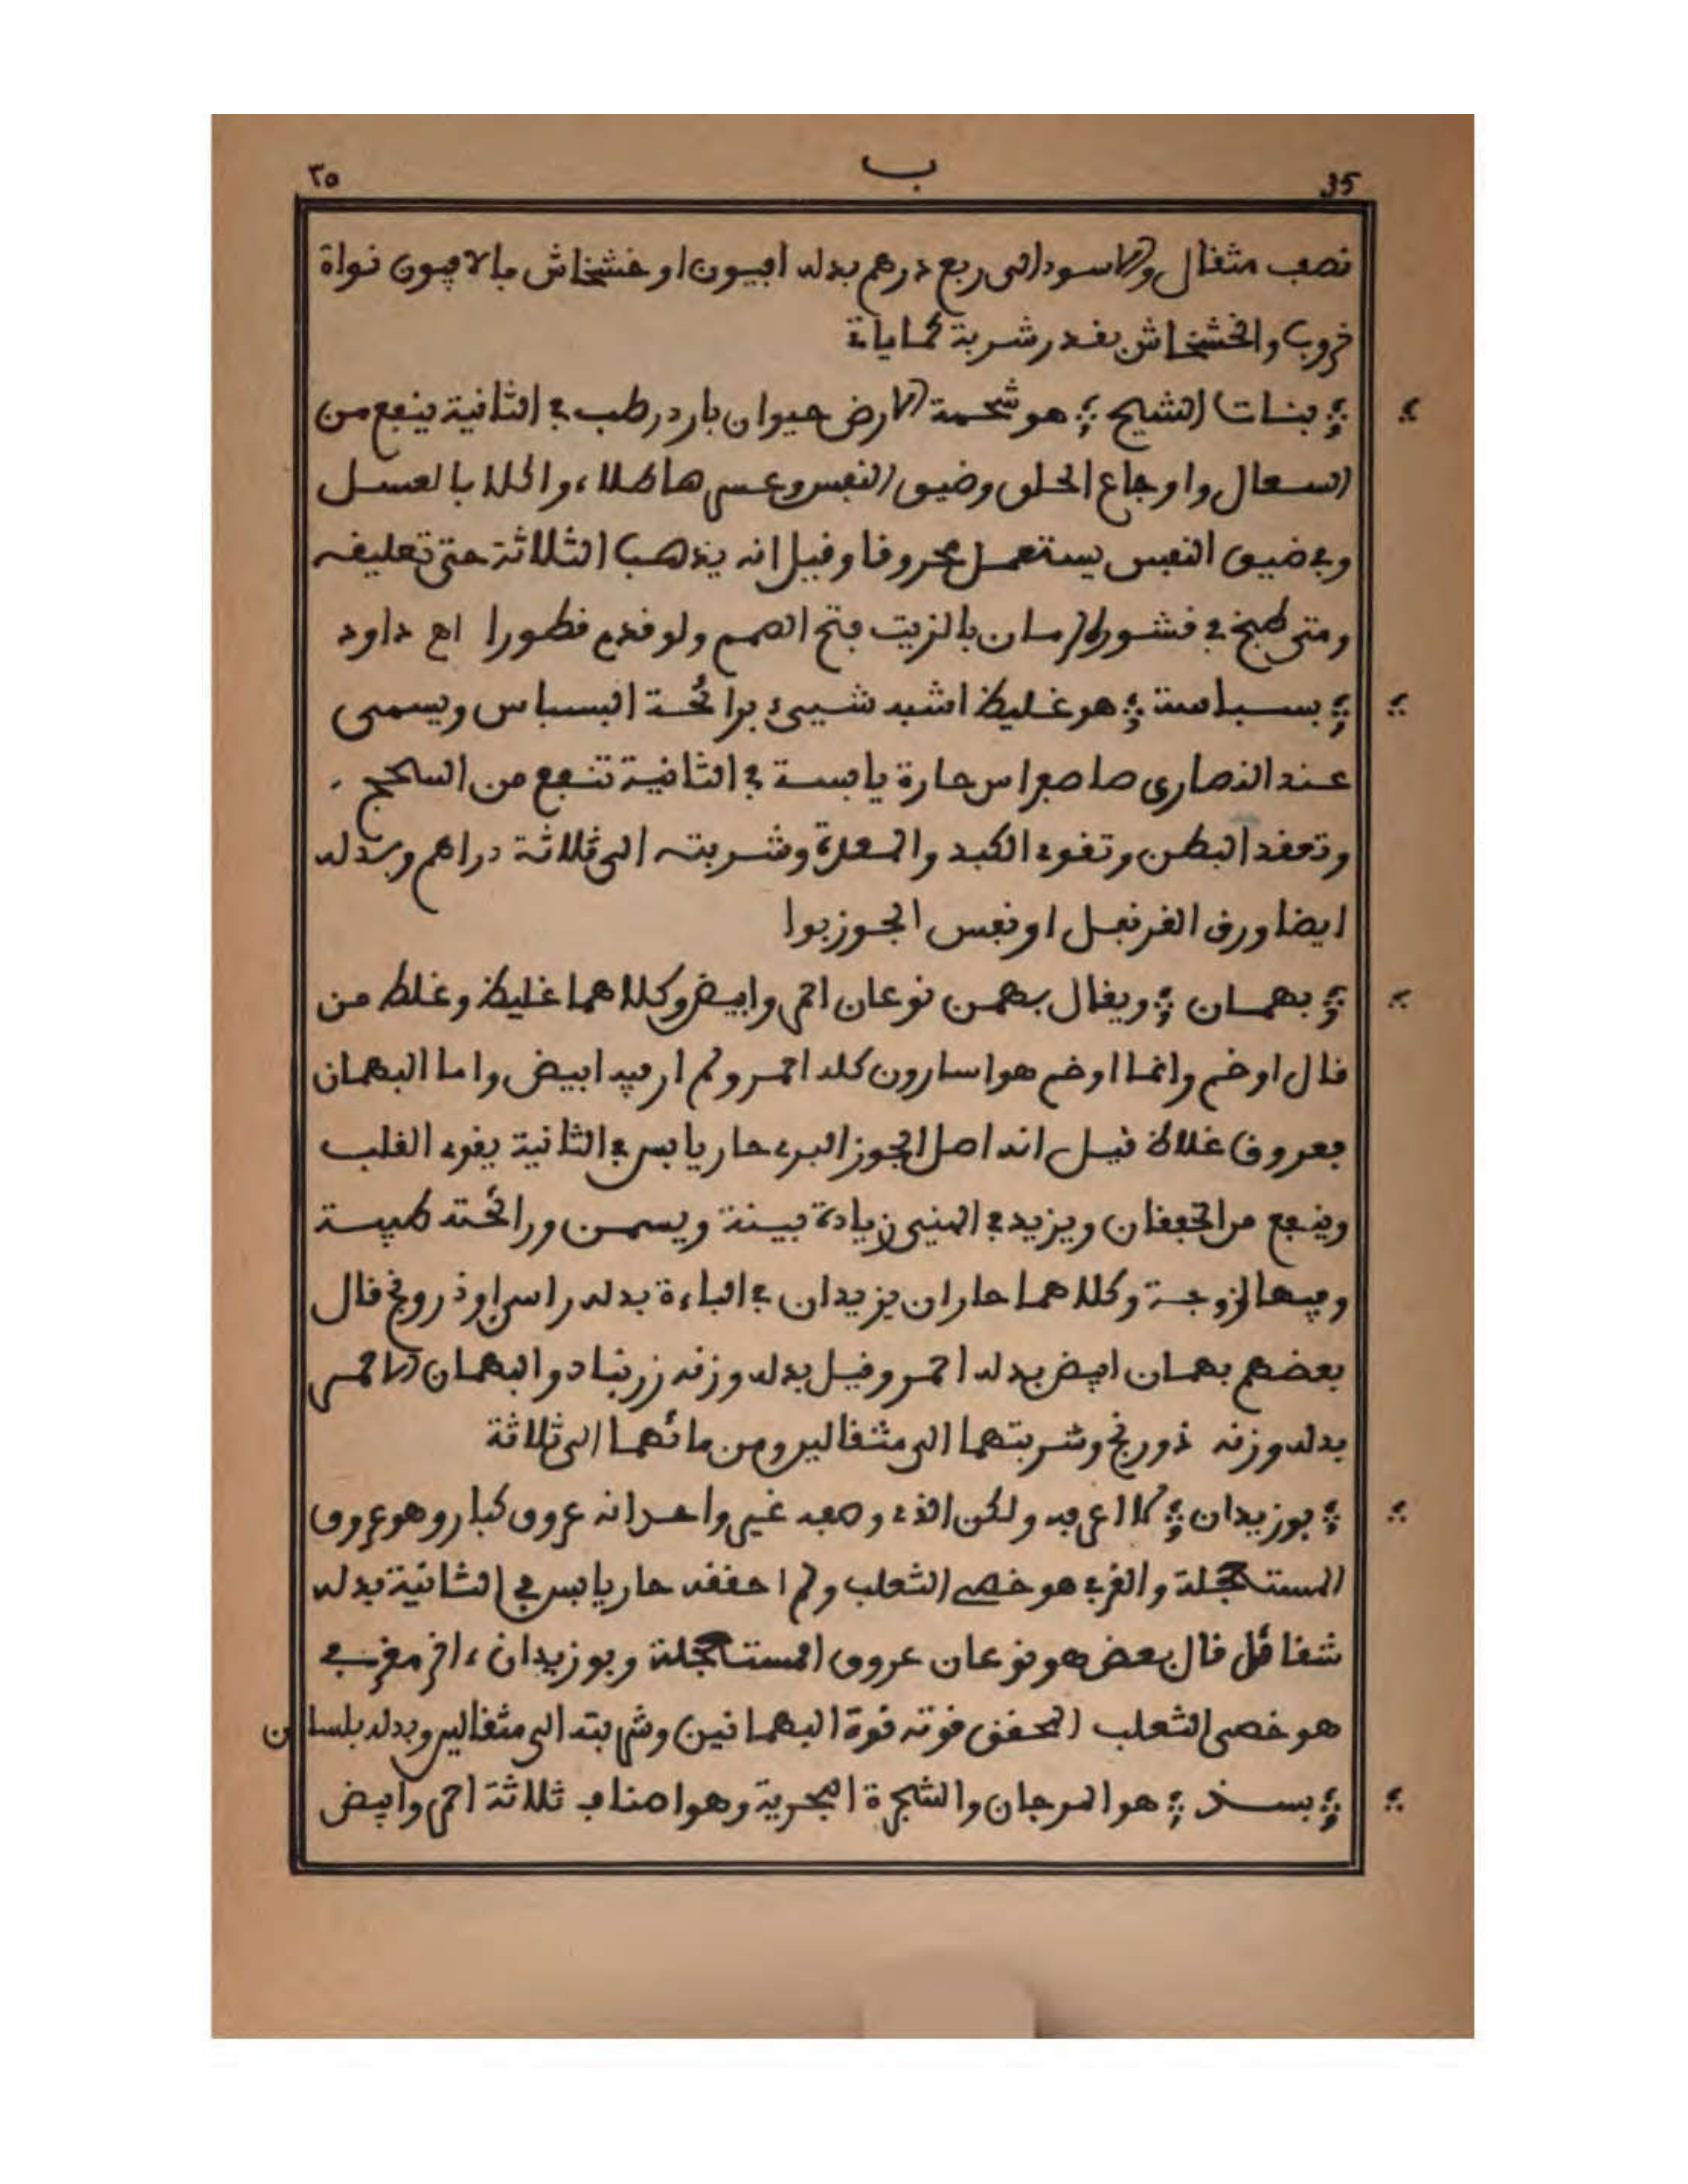 ٣٥ ب 35
نصف مثقال والاسود الى ربع درهم بدله افيون او خشخاش فالافيون نواة
خروب والخشخاش بقدر شربة كماياتى
بنات الشيح هو شحمة الارض حيوان بارد رطب في الثانية ينفع من
السعال واوجاع الحلق وضيق النفس وعسرها طلاء والحلا بالعسل
وفي ضيق النفس يستعمل محروقا وقيل انه يذهب الثلاثة حتى تعليقه
ومتى طبخ في قشور الرمان بالزيت فتح الصمم ولو قدم قطورا اه داود
بسباسة هو غليظ اشبه شيىء برائحة البسباس ويسمى
عند النصارى ماصفراس حارة يابسة في الثانية تنفع من السحج
وتعقد البطن وتقوي الكبد والمعدة وشربته الى ثلاثة دراهم وبدله
ايضا ورق القرنفل او نفس الجوزبوا
بهمان ويقال بهمن نوعان احمر وابيض وكلاهما غليظ وغلط من
قال اوخم وانما اوخم هو اسارون كله احمر ولم ار فيه ابيض واما البهمان
فعروق غلاظ قيل انه اصل الجوز البري حار يابس في الثانية يقوي القلب
وينفع من الخفقان ويزيد في المنيى زيادة بينة ويسمن ورائحته طيبة
وفيها لزوجة وكلاهما حاران يزيدان في الباءة بدله راسن او ذرونج قال
بعضهم بهمان ابيض بدله احمر وقيل بدله وزنه زرنباد والبهمان الاحمر
بدله وزنه ذورنج وشربتهما الى مثقالين ومن مائهما الى ثلاثة
بوزيدان لا اعرفه ولكن الذي وصفه غير واحد انه عروق كبار وهو عروق
المستعجلة والغربي هو خصي الثعلب ولم احققه حار يابس في الثانية بدله
شقاقل قال بعض هو نوعان عروق المستعجلة وبوزيدان ءاخر مغربي
هو خصى الثعلب المحقق قوته قوة البهمانين وشربته الى مثقالين وبدله بلسان
بسذ هو المرجان والشجرة البحرية وهو اصناف ثلاثة احمر وابيض